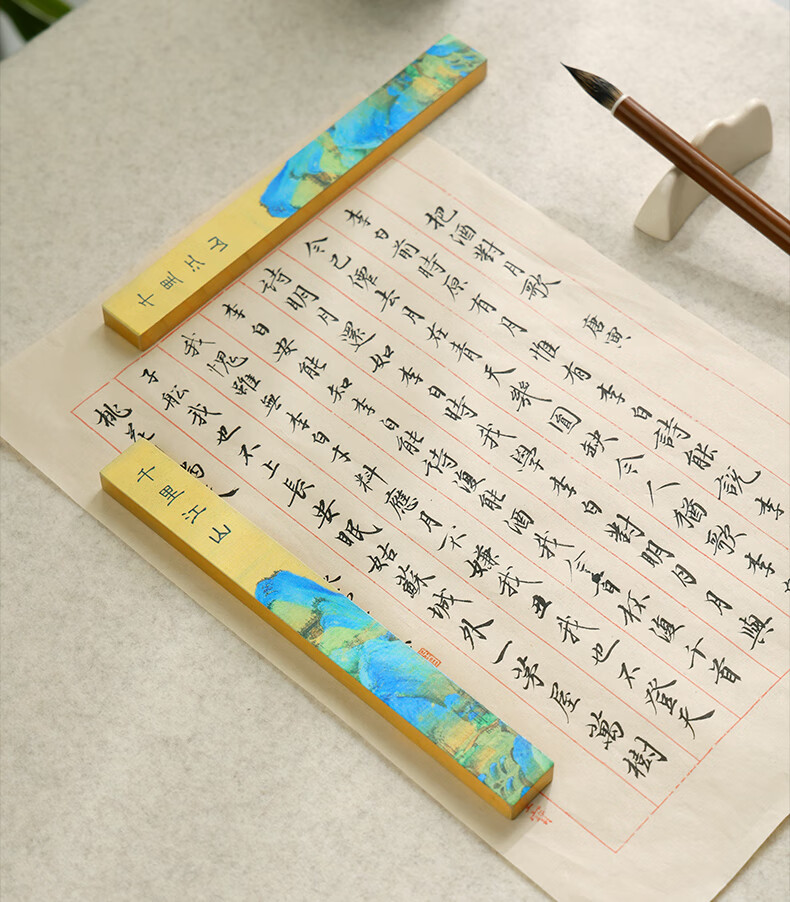 把酒對月歌 唐寅
李白前時原有月惟有李白詩能說李
今已僊去月在青天幾圓缺今人猶歌李
詩明月還如李白時我學李白對明月月與
李白安能知李白能詩復能酒我今百杯復千首
我愧雖無李白才料應月不嫌我丑我也不登天
子船我也不上長安眠姑蘇城外一茅屋萬樹
桃花
千里江山
千里江山